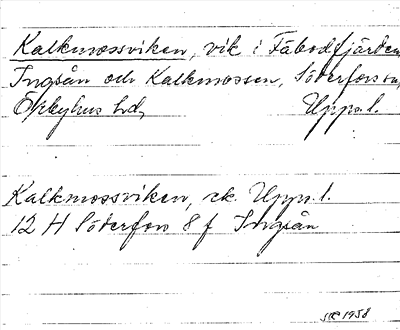 Kalkmossviken, vik i Fäbodfjärden,
Ingsån och Kalkmossen, Söderfors sn,
Örbyhus hd, Upps. l.
Kalkmossviken, ek. Upps. l.
12 H Söderfors 8 f Ingsån
1958